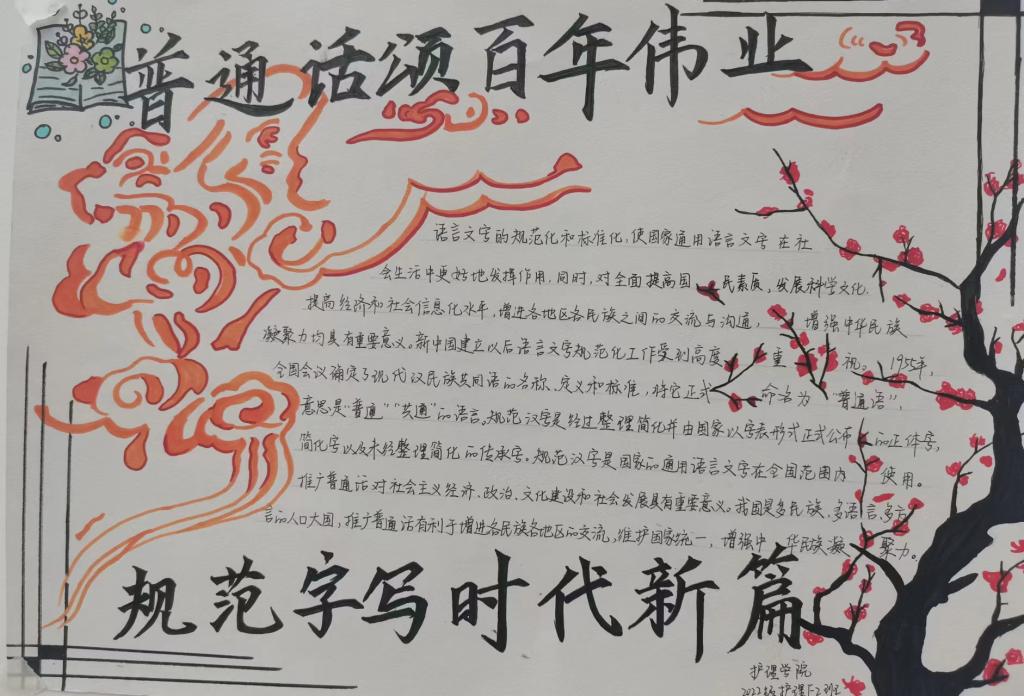 普通话颂百年伟业
语言文字的规范化和标准化,使国家通用语言文字在社
会生活中更好地发挥作用,同时,对全面提高国民素质,发展科学文化,
提高经济和社会信息化水平,增进各地区各民族之间的交流与沟通,增强中华民族
凝聚力均具有重要意义。新中国建立以后语言文字规范化工作受到高度重视。1955年,
全国会议确定了现代汉民族共同语的名称、定义和标准,将它正式命名为“普通语”,
意思是“普通”“共通”的语言。规范汉字是经过整理简化并由国家以字表形式正式公布的正体字,
简化字以及未经整理简化的传承字。规范汉字是国家的通用语言文字在全国范围内使用。
推广普通话对社会主义经济、政治、文化建设和社会发展具有重要意义。我国是多民族、多语言、多方
言的人口大国,推广普通话有利于增进各民族各地区的交流,维护国家统一,增强中华民族凝聚力。
规范字写时代新篇
护理学院
2022级护理F2班